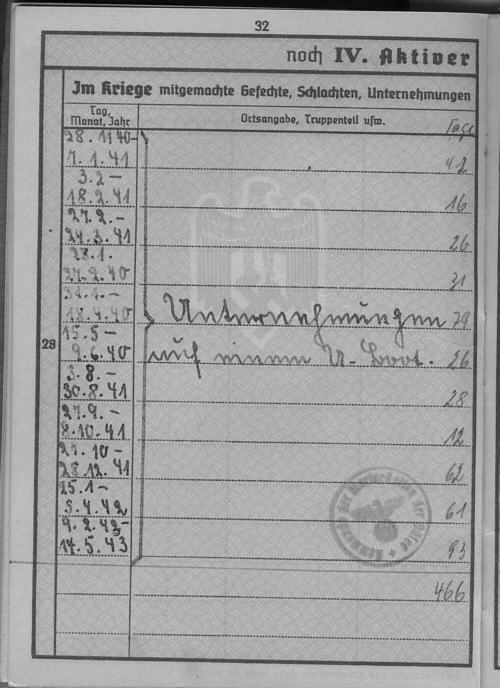 32
noch IV. Aktiver
Im Kriege mitgemachte Gefechte, Schlachten, Unternehmungen
Tag, Monat, Jahr
Ortsangabe, Truppenteil usw.
Tage
28. 11 40-
7. 1. 41
42
3. 2 –
18. 2. 41
16
27. 2. –
24. 3. 41
26
28. 1.
27. 2. 40
31
31. 1. –
18. 4. 40
Unternehmungen
79
15. 5 –
9. 6. 40
auf einem U-Boot.
26
28
3. 8. –
30. 8. 41
28
27. 9. –
8. 10. 41
12
27. 10 –
28. 12. 41
62
25. 1 –
5. 4. 42
61
9. 2. 43-
14. 5. 43
93
466